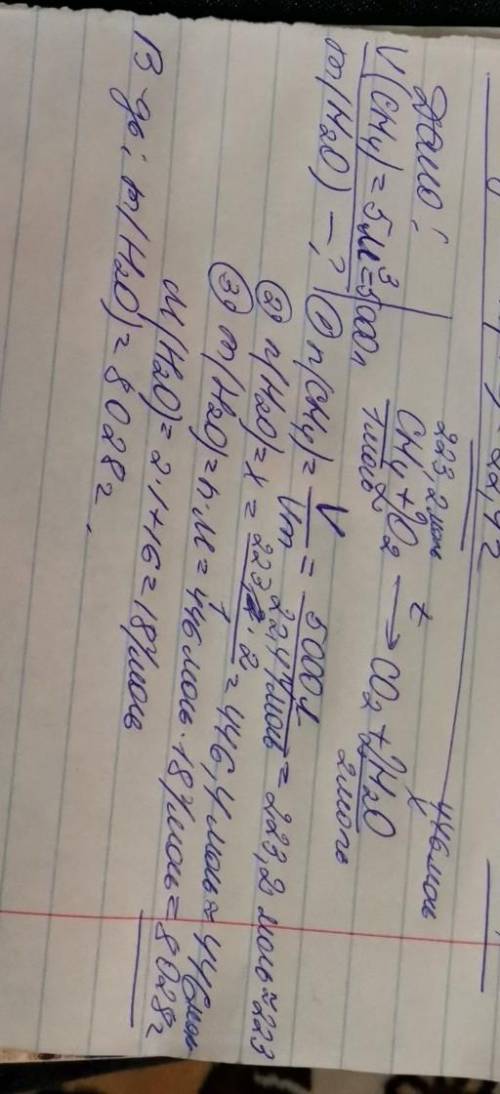 = 22,4 л
Дано:
V(CH₄) = 5м³ = 5000л
m(H₂O) - ?
223,2 моль x 446 моль
CH₄ + 2O₂ t → CO₂ + 2H₂O
1моль 2моль
① n(CH₄) = V/Vm = 5000л/22,4 л/моль = 223,2 моль ≈ 223
② n(H₂O) = x = 223,2·2/1 = 446,4 моль ≈ 446 моль
③ m(H₂O) = n·M = 446 моль · 18 г/моль = 8028 г
M(H₂O) = 2·1+16 = 18 г/моль
В-дь: m(H₂O) = 8028 г.